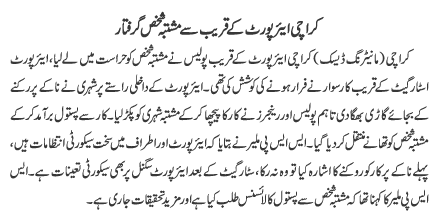 کراچی ایئرپورٹ کے قریب سے مشتبہ شخص گرفتار
کراچی (مانیٹرنگ ڈیسک) کراچی ایئرپورٹ کے قریب پولیس نے مشتبہ شخص کو حراست میں لے لیا، ایئرپورٹ
اسٹارگیٹ کے قریب کار سوار نے فرار ہونے کی کوشش کی تھی۔ ایئرپورٹ کے داخلی راستے پر شہری نے ناکے پر رکنے
کے بجائے گاڑی بھگا دی تاہم پولیس اور رینجرز نے کار کا پیچھا کرکے مشتبہ شہری کو پکڑ لیا۔ کار سے پستول برآمد کرکے
مشتبہ شخص کو تھانے منتقل کردیا گیا۔ ایس ایس پی ملیر نے بتایا کہ ایئرپورٹ اور اطراف میں سخت سیکورٹی انتظامات ہیں،
پہلے ناکے پر کار کو روکنے کا اشارہ کیا تو وہ نہ رکا، سٹارگیٹ کے بعد ایئرپورٹ سگنل پر بھی سیکورٹی تعینات ہے۔ ایس ایس
پی ملیر کا کہنا تھا کہ مشتبہ شخص سے پستول کا لائسنس طلب کیا ہے اور مزید تحقیقات جاری ہے۔